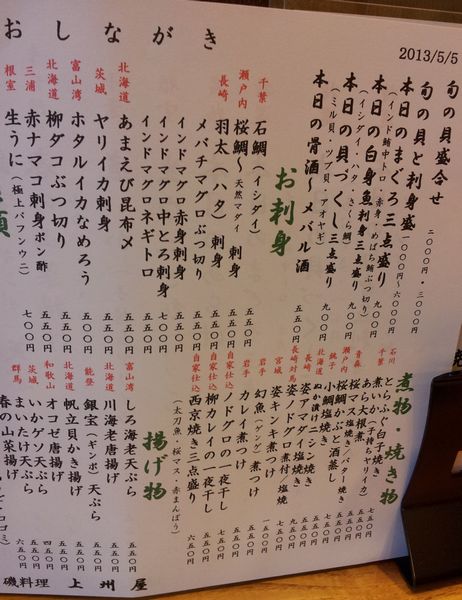 おしながき
2013/5/5
旬の貝盛合せ 二〇〇〇円・三〇〇〇円
旬の貝と刺身盛り 一〇〇〇円〜六〇〇〇円
本日のまぐろ三点盛り 九〇〇円
(インド鮪中トロ・赤身・めばち鮪ぶつ切り)
本日の白身魚刺身三点盛り 九〇〇円
(イシダイ・ハタ・さくら鯛)
本日の貝づくし三点盛り 九〇〇円
(ミル貝・ツブ貝・アオヤギ)
本日の骨酒〜メバル酒
お刺身
千葉 石鯛(イシダイ) 刺身 五五〇円
瀬戸内 桜鯛〜天然マダイ 刺身 五五〇円
長崎 羽太(ハタ) 刺身 五五〇円
メバチマグロぶつ切り 五五〇円
インドマグロ赤身刺身 五五〇円
インドマグロ中とろ刺身 七〇〇円
インドマグロネギトロ 五五〇円
北海道 あまえび昆布〆 五五〇円
茨城 ヤリイカ刺身 五五〇円
富山湾 ホタルイカなめろう 五〇〇円
北海道 柳ダコぶつ切り 五五〇円
三浦 赤ナマコ刺身ポン酢 五五〇円
根室 生うに(極上バフンウニ) 七〇〇円
煮物・焼き物
石川 とらふぐ白子焼き 七五〇円
千葉 煮いか(子持ちヤリイカ)
青森 桜マス大根煮
瀬戸内 桜鯛かぶと塩焼き/バター焼き
銚子 小鯛塩焼き/酒蒸し
北海道 ぬか漬けニシン焼き
長崎対馬 姿マダイ塩焼き
姿ノドグロ煮付/塩焼
宮城 姿キンキ煮つけ
岩手 幻魚(ゲンゲ)煮つけ
岩手 カレイ煮つけ
自家仕込 ノドグロの一夜干し
自家仕込 柳カレイの一夜干し
自家仕込 西京焼き三点盛り 六五〇円
(太刀魚・桜マス・赤まんぼう)
揚げ物
富山湾 しろ海老天ぷら 五五〇円
北海道 川海老唐揚げ 五五〇円
能登 銀宝(ギンポ)天ぷら 五五〇円
北海道 帆立貝かき揚げ 五五〇円
和歌山 オコゼ唐揚げ 四五〇円
茨城 いかゲソ天ぷら 五五〇円
群馬 まいたけ天ぷら 五五〇円
春の山菜揚げ
磯料理 上州屋